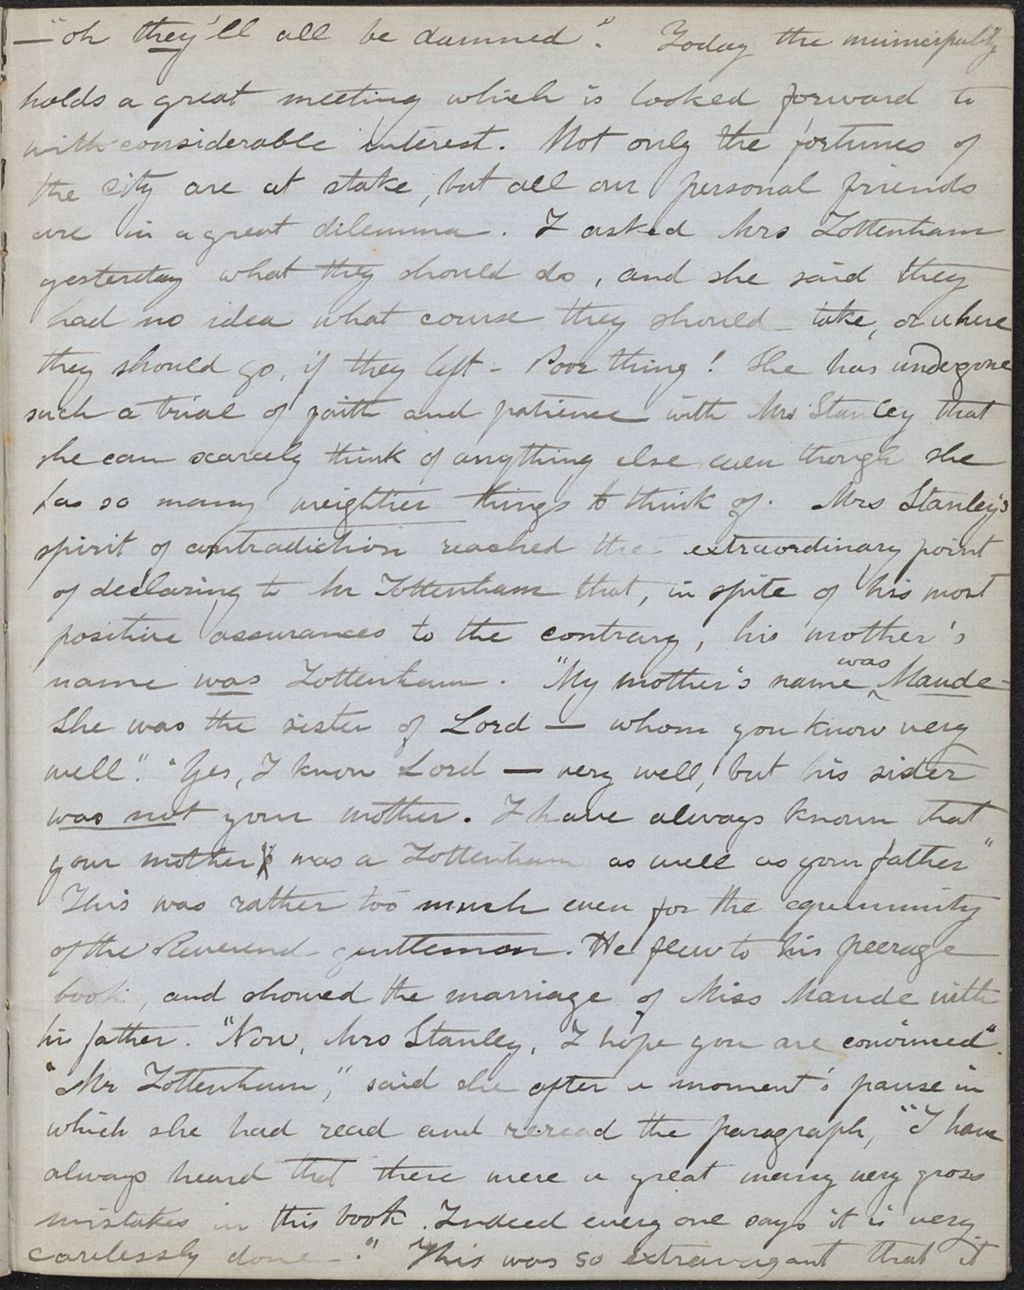 — "oh they'll all be damned". Today the municipality
holds a great meeting which is looked forward to
with considerable interest. Not only the fortunes of
the city are at stake, but all our personal friends
are in a great dilemma. I asked Mrs Tottenham
yesterday what they should do, and she said they
had no idea what course they should take, or where
they should go, if they left - Poor thing! She has undergone
such a trial of faith and patience with Mrs Stanley that
she can scarcely think of anything else even though she
has so many weightier things to think of. Mrs Stanley's
spirit of contradiction reached the extraordinary point
of declaring to Mr Tottenham that, in spite of his most
positive assurances to the contrary, his mother's
name was Tottenham. "My mother's name was Maude -
She was the sister of Lord — whom you know very
well". "Yes, I know Lord — very well, but his sister
was not your mother. I have always known that
your mother was a Tottenham as well as your father"
This was rather too much even for the equanimity
of the Reverend gentleman. He flew to his peerage
book, and showed the marriage of Miss Maude with
his father. "Now, Mrs Stanley, I hope you are convinced".
"Mr Tottenham", said she after a moment's pause in
which she had read and reread the paragraph, "I have
always heard that there were a great many very gross
mistakes in this book. Indeed every one says it is very
carelessly done." This was so extravagant that it